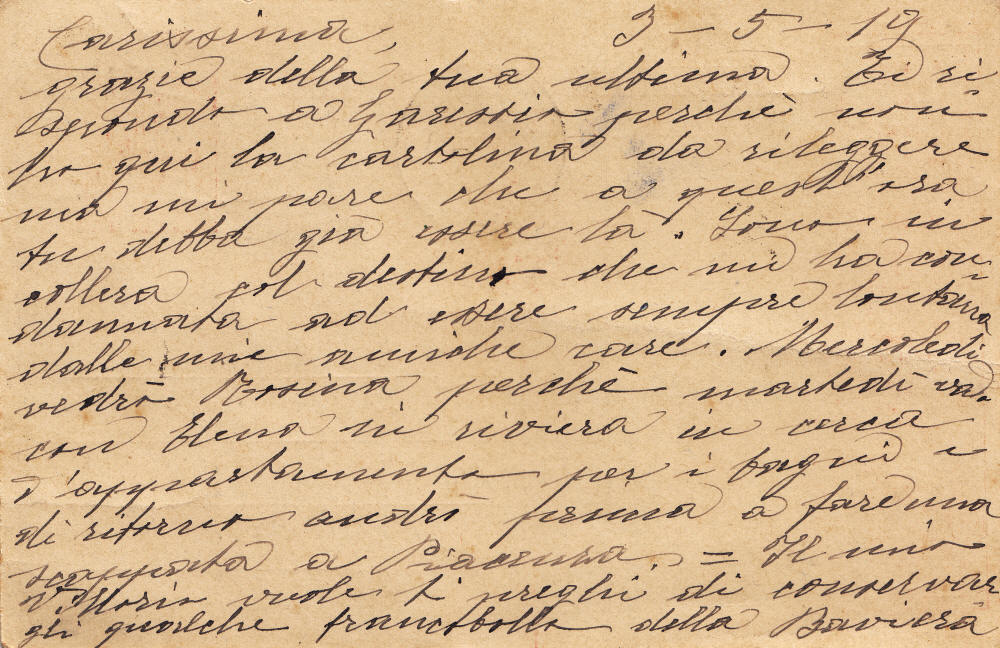 Carissima, 3 - 5 - 19
grazie della tua ultima. Ti ri
spondo a Garessio perchè non
ho qui la cartolina da rileggere
ma mi pare che a quest'ora
tu debba già essere là. Sono in
collera col destino che mi ha con
dannata ad essere sempre lontana
dalle mie amiche care. Mercoledì
vedrò Rosina perchè martedì vado
con Elena in riviera in cerca
d'appartamento per i bagni e
di ritorno andrò prima a fare una
scappata a Piacenza. = Il mio
Mario vuole ti preghi di conservar
gli qualche francobollo della Baviera